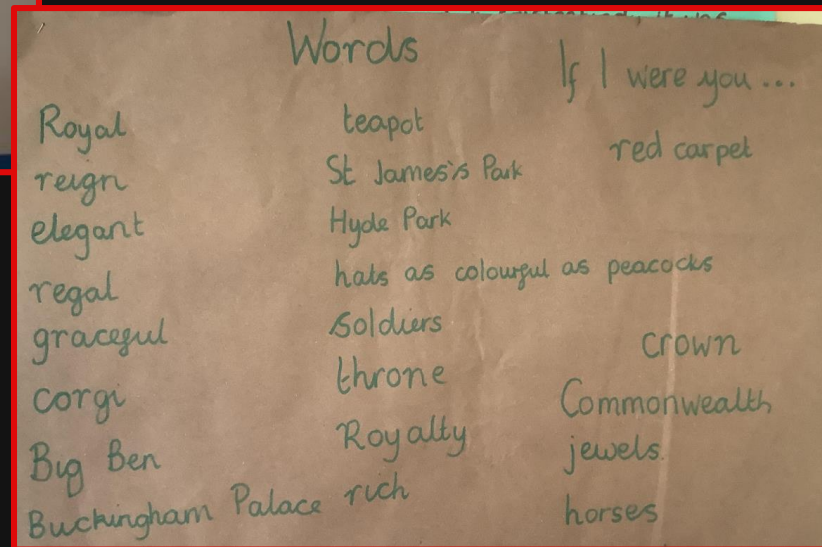 Words
If I were you ...
Royal
reign
elegant
regal
graceful
corgi
Big Ben
Buckingham Palace
teapot
St James's Park
Hyde Park
hats as colourful as peacocks
soldiers
throne
Royalty
rich
red carpet
crown
Commonwealth
jewels
horses